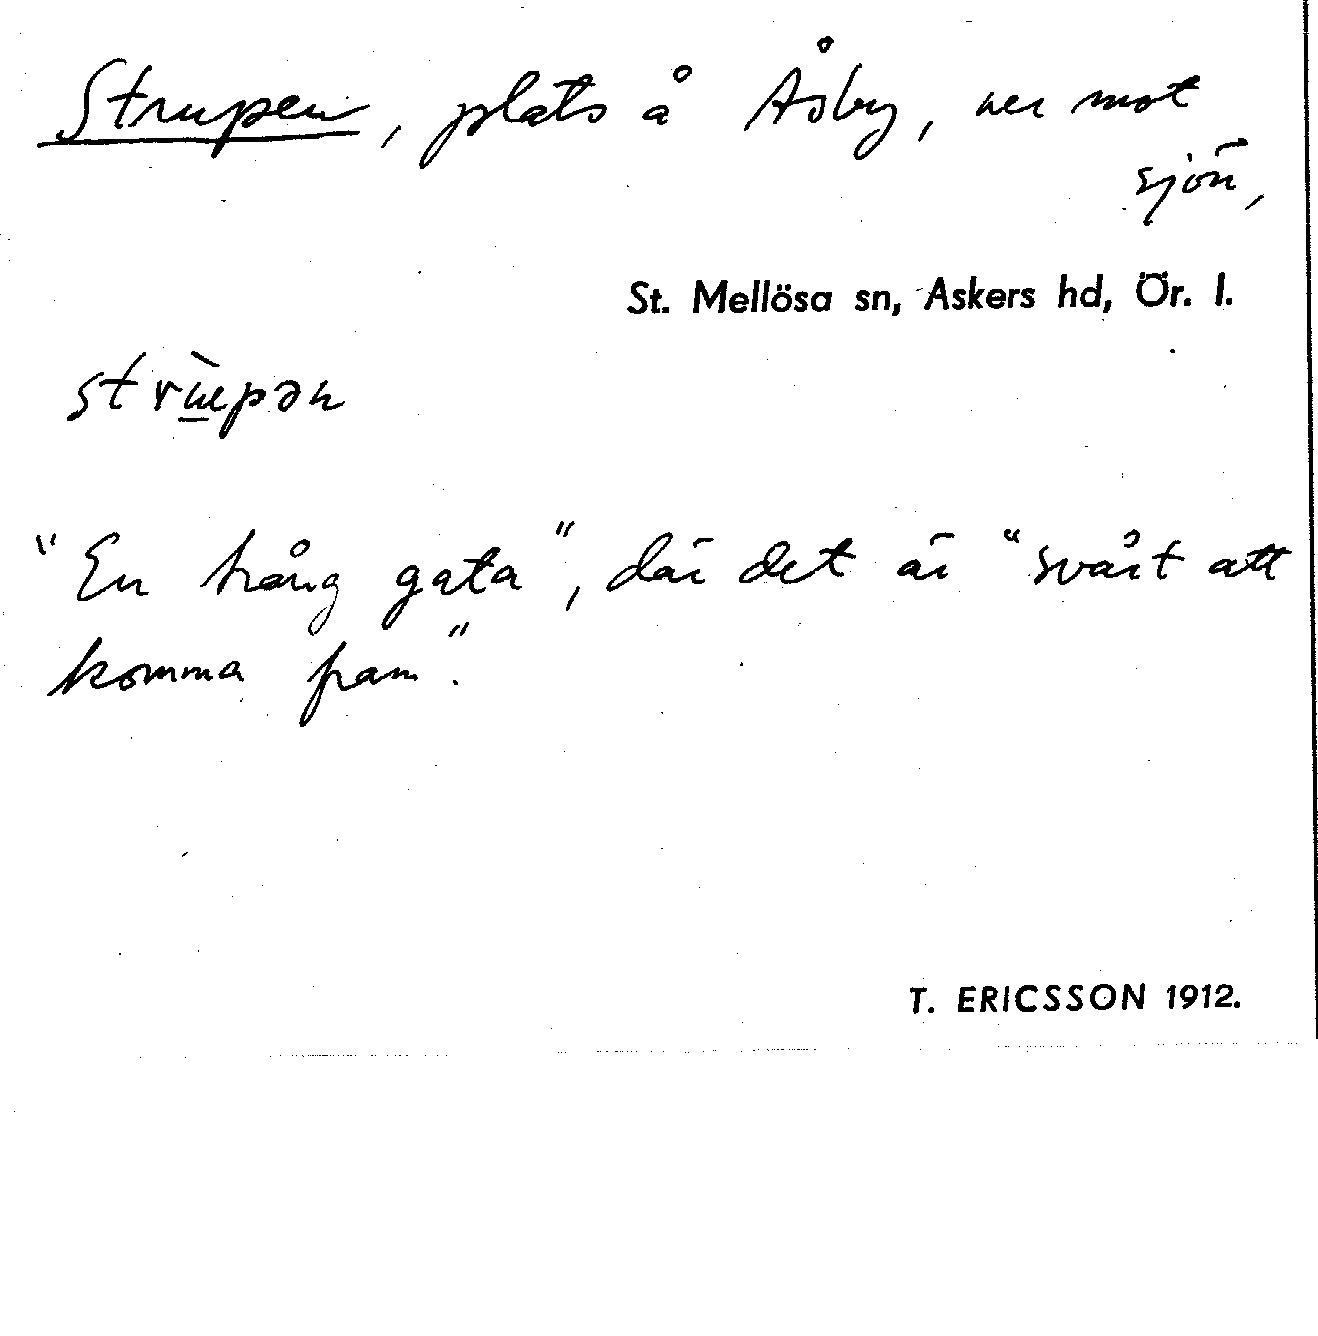 Strupen, plats å Åsby, ner mot
sjön,
St. Mellösa sn, Askers hd, Ör. l.
"En trång gata", där det är "svårt att
komma fram".
T. ERICSSON 1912.